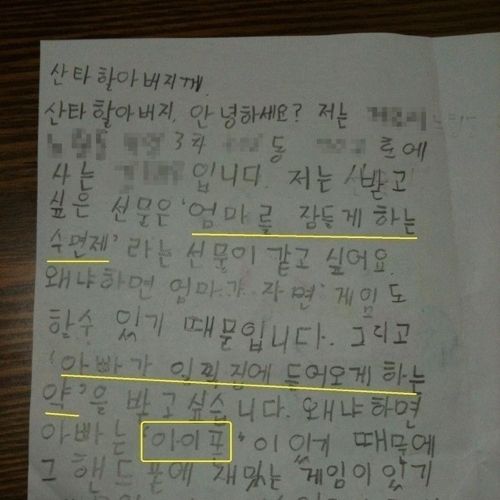 산타 할아버지께.
산타 할아버지. 안녕하세요? 저는
3차 동 르에
사는 입니다. 저는 받고
싶은 선물은 '엄마를 잠들게 하는
수면제' 라는 선물이 갖고 싶어요.
왜냐하면 엄마가 자면 게임도
할수 있기 때문입니다. 그리고
'아빠가 일찍 집에 들어오게 하는
약'을 받고 싶습니다. 왜냐하면
아빠는 '아이폰'이 있기 때문에
그 핸드폰에 재밌는 게임이 있기